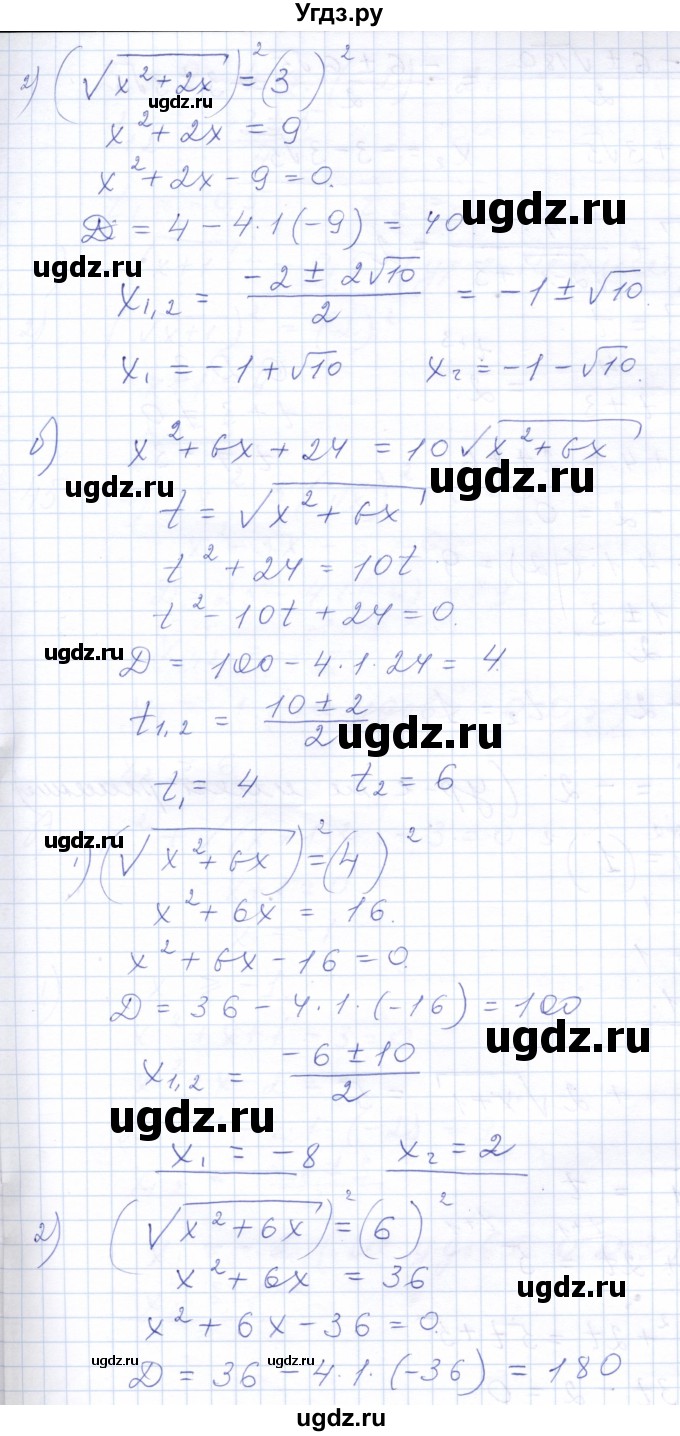 Угдз.ру
2) (√(x²+2x))² = (3)²
ugdz.ru
x²+2x = 9
x²+2x-9=0.
ugdz.ru
D = 4-4·1(-9) = 40
ugdz.ru
x₁,₂ = (-2±2√10)/2 = -1±√10.
x₁ = -1+√10 x₂ = -1-√10.
б) x²+6x+24 = 10√(x²+6x)
ugdz.ru
ugdz.ru
t = √(x²+6x)
t²+24=10t
t²-10t+24=0.
ugdz.ru
D = 100-4·1·24 = 4.
t₁,₂ = (10±2)/2
ugdz.ru
t₁ = 4 t₂ = 6
ugdz.ru
1) (√(x²+6x))² = (4)²
x²+6x = 16.
x²+6x-16=0.
D = 36-4·1·(-16) = 100
ugdz.ru
x₁,₂ = (-6±10)/2
ugdz.ru
x₁ = -8 x₂ = 2
2) (√(x²+6x))² = (6)²
x²+6x = 36
ugdz.ru
x²+6x-36=0.
ugdz.ru ugdz.ru
D = 36-4·1·(-36) = 180.
ugdz.ru